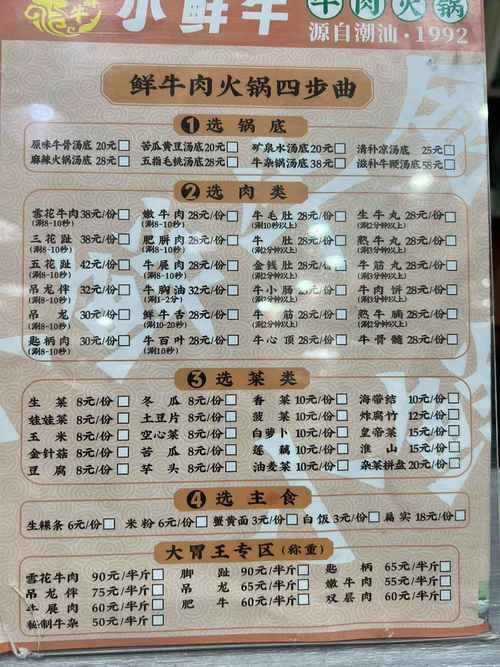 小鲜牛 牛肉火锅
源自潮汕·1992
鲜牛肉火锅四步曲
1 选锅底
原味牛骨汤底 20元 苦瓜黄豆汤底 20元 矿泉水汤底 20元 清补凉汤底 25元
麻辣火锅汤底 28元 五指毛桃汤底 28元 牛杂锅汤底 38元 滋补牛鞭汤底 58元
2 选肉类
雪花牛肉 38元/份 嫩牛肉 28元/份 牛毛肚 28元/份 生牛丸 28元/份
(涮8-10秒) (涮8-10秒) (涮10秒以上)
三花趾 38元/份 肥胼肉 28元/份 牛肚 28元/份 熟牛丸 28元/份
(涮8-10秒) (涮8-10秒)
五花趾 42元/份 牛展肉 28元/份 金钱肚 28元/份 牛筋丸 28元/份
(涮8-10秒) (涮8-10秒)
吊龙伴 32元/份 牛胸油 32元/份 牛小肠 28元/份 牛肉饼 28元/份
(涮8-10秒) (涮1-2分)
吊龙 30元/份 鲜牛舌 28元/份 牛筋 28元/份 熟牛腩 28元/份
(涮8-10秒) (涮10-20秒)
匙柄肉 30元/份 牛百叶 28元/份 牛心顶 28元/份 牛骨髓 28元/份
(涮8-10秒) (涮10秒)
3 选菜类
生菜 8元/份 冬瓜 8元/份 香菜 10元/份 海带结 10元/份
娃娃菜 8元/份 土豆片 8元/份 菠菜 10元/份 炸腐竹 12元/份
玉米 8元/份 空心菜 8元/份 白萝卜 10元/份 皇帝菜 15元/份
金针菇 8元/份 苦瓜 8元/份 莲藕 10元/份 淮山 15元/份
豆腐 8元/份 芋头 8元/份 油麦菜 10元/份 杂菜拼盘 20元/份
4 选主食
生粿条 6元/份 米粉 6元/份 蟹黄面 3元/份 白饭 3元/份 扁实 18元/份
大胃王专区(称重)
雪花牛肉 90元/半斤 脚趾 90元/半斤 匙柄 65元/半斤
吊龙伴 75元/半斤 吊龙 65元/半斤 嫩牛肉 55元/半斤
牛展肉 60元/半斤 肥牛 60元/半斤 双层肉 60元/半斤
秘制牛杂 50元/半斤